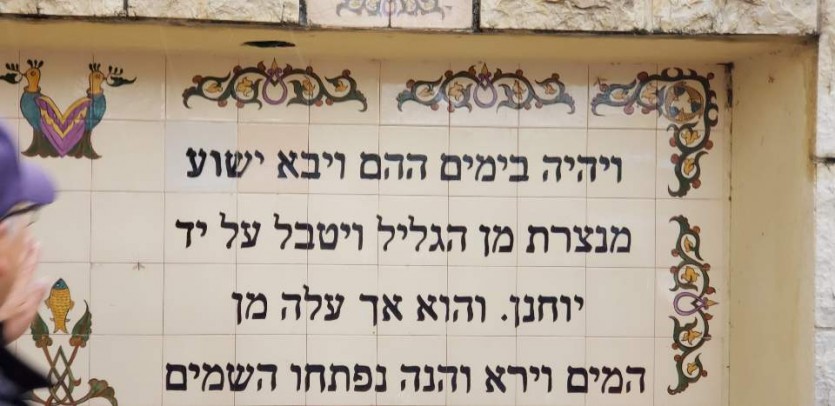 ויהיה בימים ההם ויבא ישוע
מנצרת מן הגליל ויטבל על יד
יוחנן. והוא אך עלה מן
המים וירא והנה נפתחו השמים